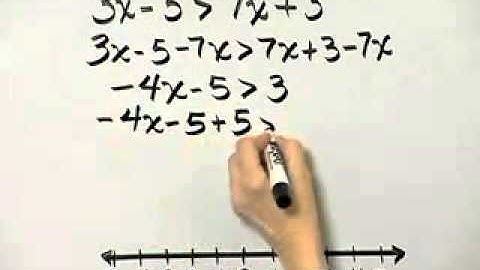 3x - 5 > 7x + 3
3x - 5 - 7x > 7x + 3 - 7x
- 4x - 5 > 3
- 4x - 5 + 5 >